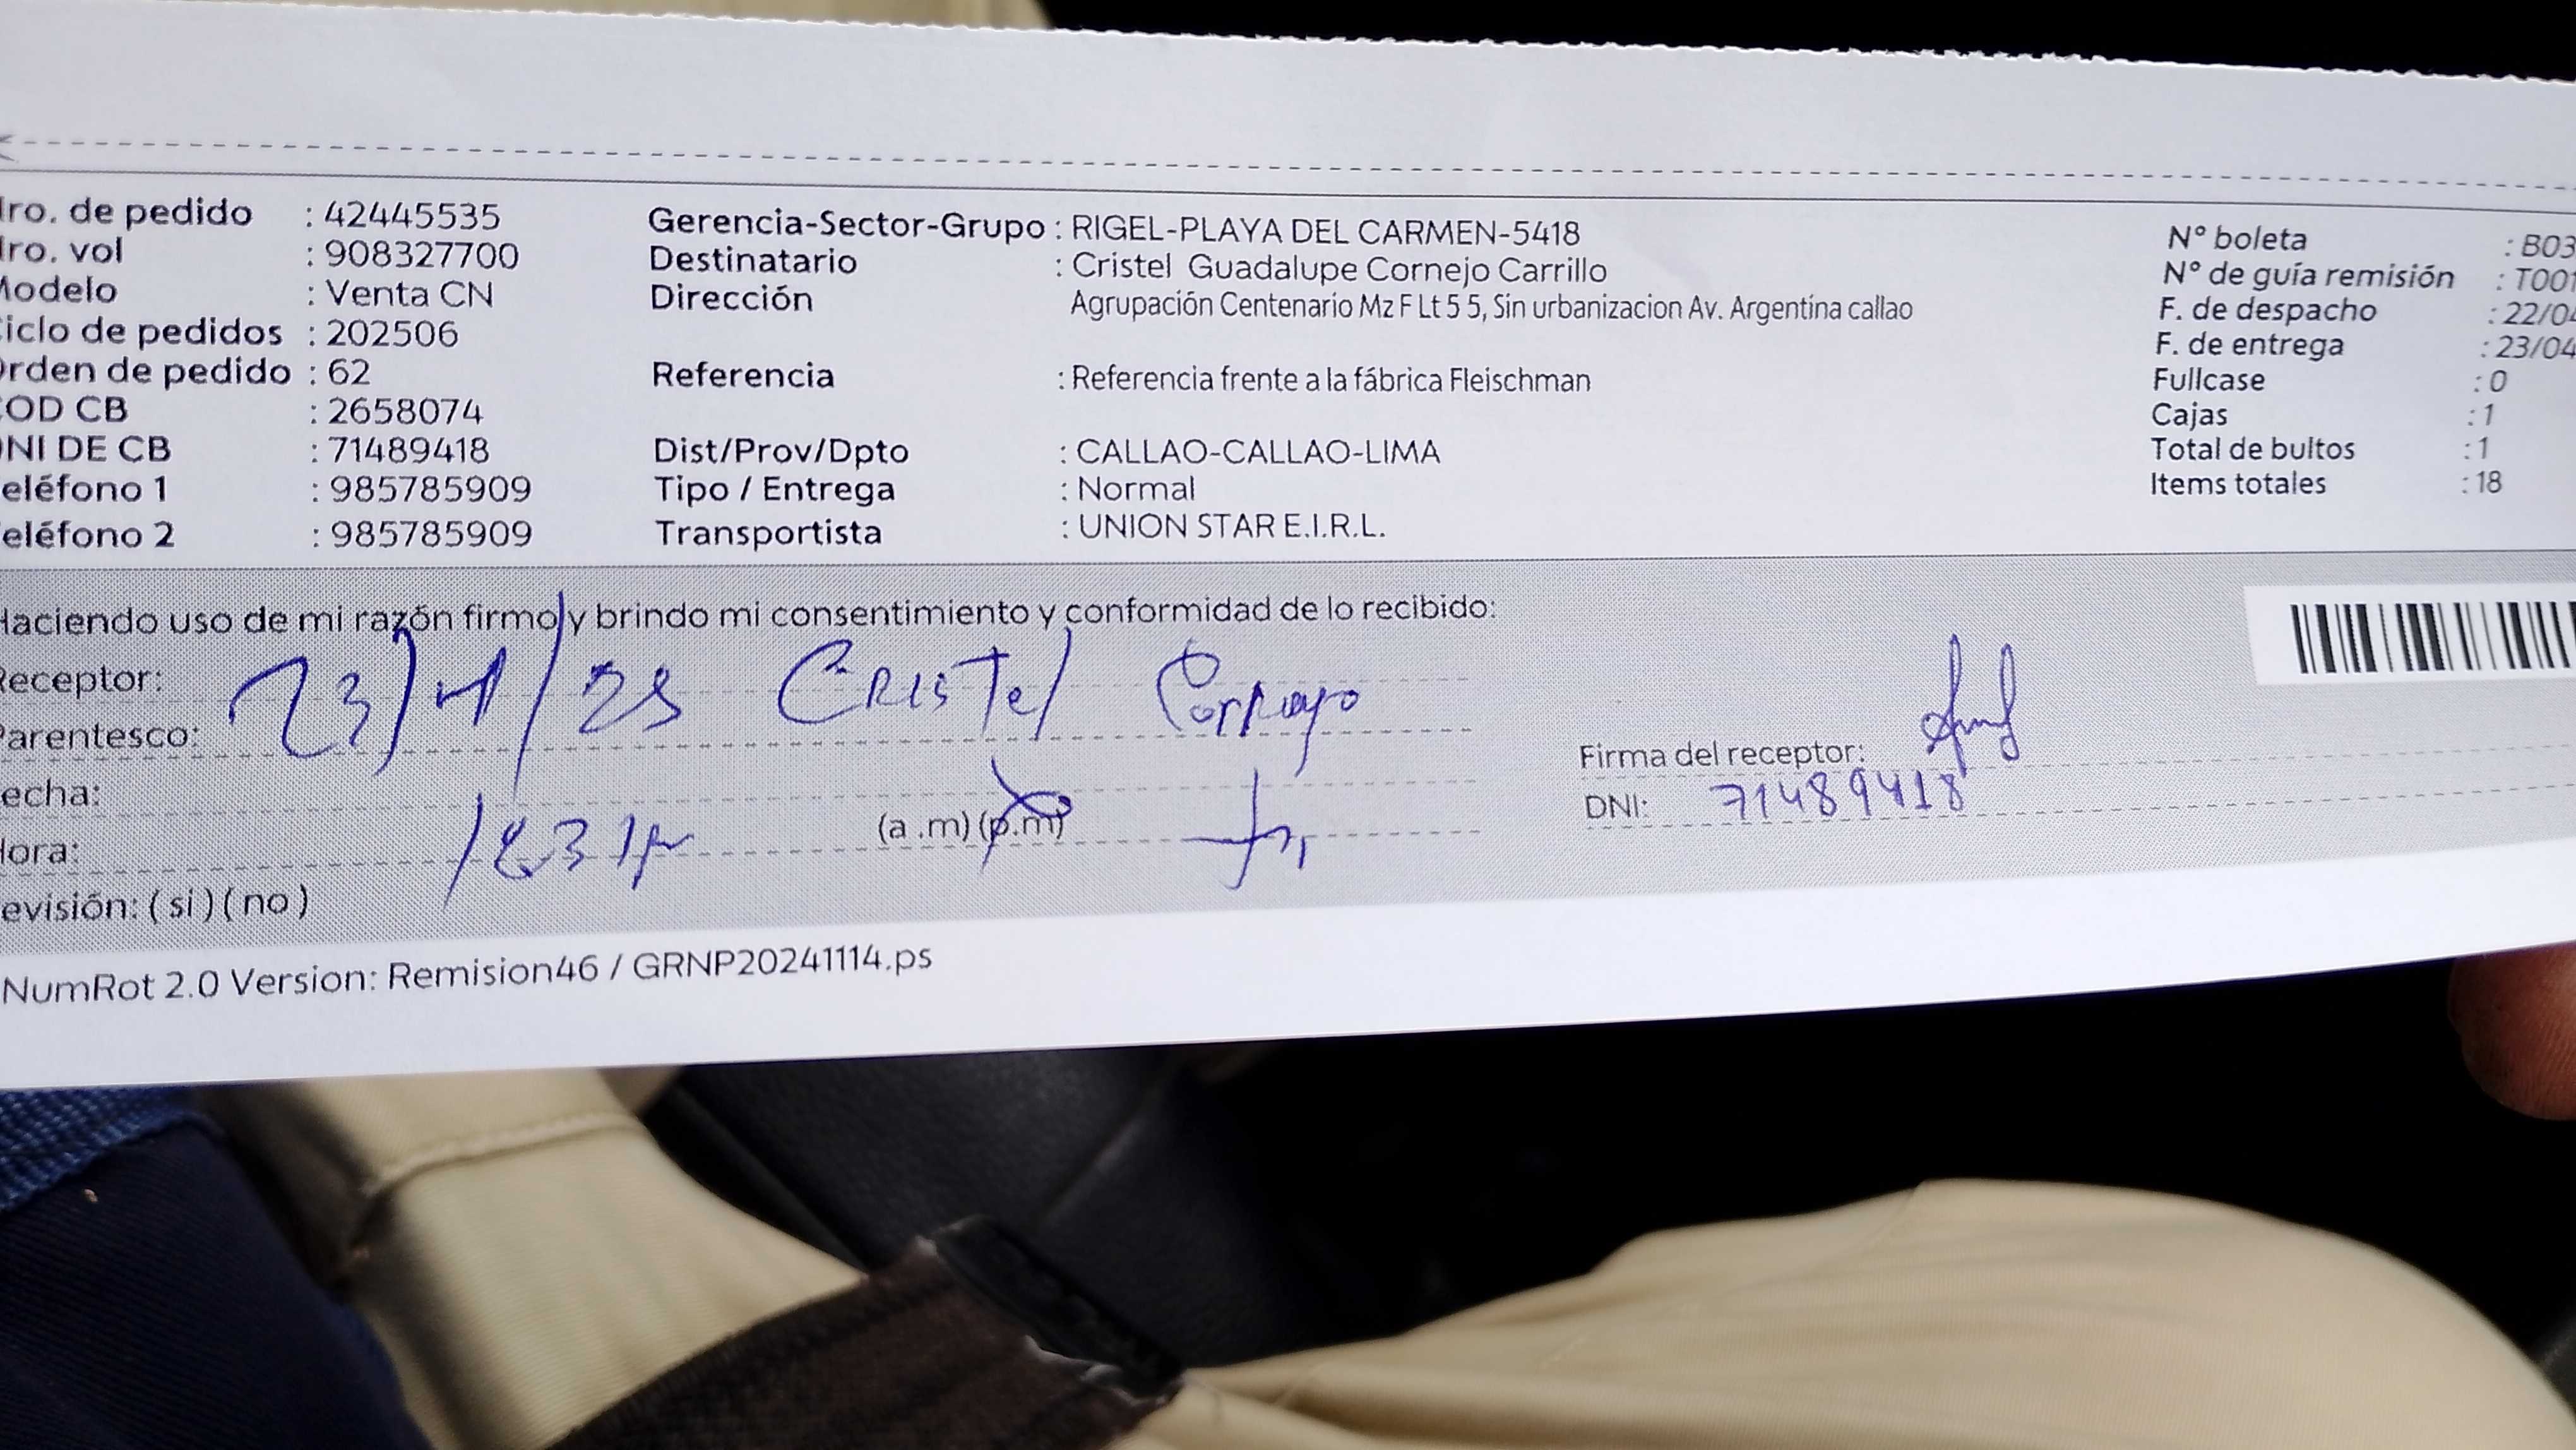 ro. de pedido : 42445535
ro. vol : 908327700
Modelo : Venta CN
iclo de pedidos : 202506
rden de pedido : 62
COD CB : 2658074
NI DE CB : 71489418
eléfono 1 : 985785909
eléfono 2 : 985785909
Gerencia-Sector-Grupo : RIGEL-PLAYA DEL CARMEN-5418
Destinatario : Cristel Guadalupe Cornejo Carrillo
Dirección Agrupación Centenario Mz F Lt 5 5, Sin urbanizacion Av. Argentina callao
Referencia : Referencia frente a la fábrica Fleischman
Dist/Prov/Dpto : CALLAO-CALLAO-LIMA
Tipo / Entrega : Normal
Transportista : UNION STAR E.I.R.L.
N° boleta : B03
N° de guía remisión : T001
F. de despacho : 22/04
F. de entrega : 23/04
Fullcase : 0
Cajas : 1
Total de bultos : 1
Items totales : 18
Haciendo uso de mi razón firmo y brindo mi consentimiento y conformidad de lo recibido:
Receptor: 23/4/25 Cristel Cornejo
Parentesco:
Firma del receptor:
echa:
DNI: 71489418
Hora: (a .m) (p.m)
evisión: ( si ) ( no )
NumRot 2.0 Version: Remision46 / GRNP20241114.ps